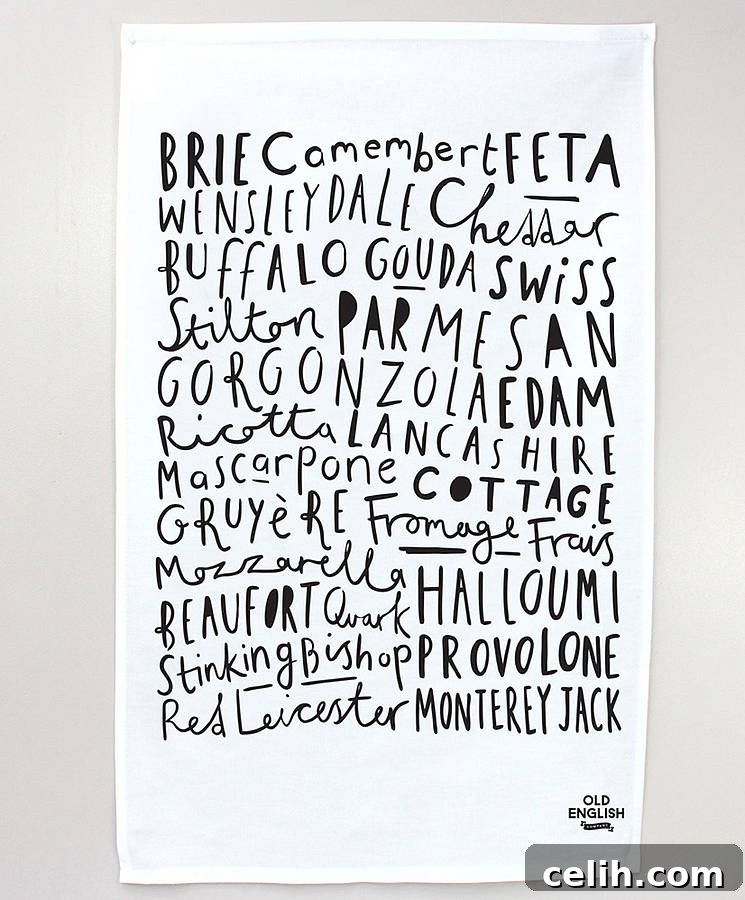 BRIE Camembert FETA
WENSLEYDALE Cheddar
BUFFALO GOUDA SWiSS
Stilton PARMESAN
GORGONZOLA EDAM
Ricotta LANCASHIRE
Mascarpone COTTAGE
GRUYèRE Fromage Frais
Mozzarella
BEAUFORT Quark HALLOUMI
Stinking Bishop PROVOLONE
Red Leicester MONTEREY JACK
OLD
ENGLISH
COMPANY
celih.com